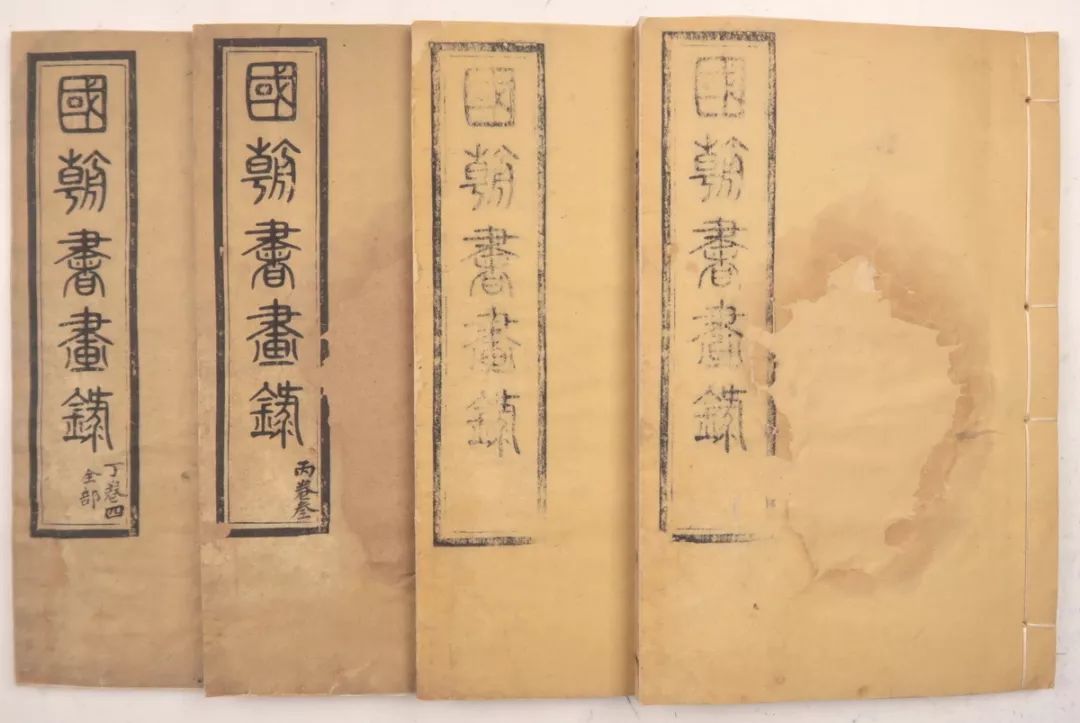 國朝書畫錄
國朝書畫錄
國朝書畫錄
丙卷叁
國朝書畫錄
丁卷四
全部